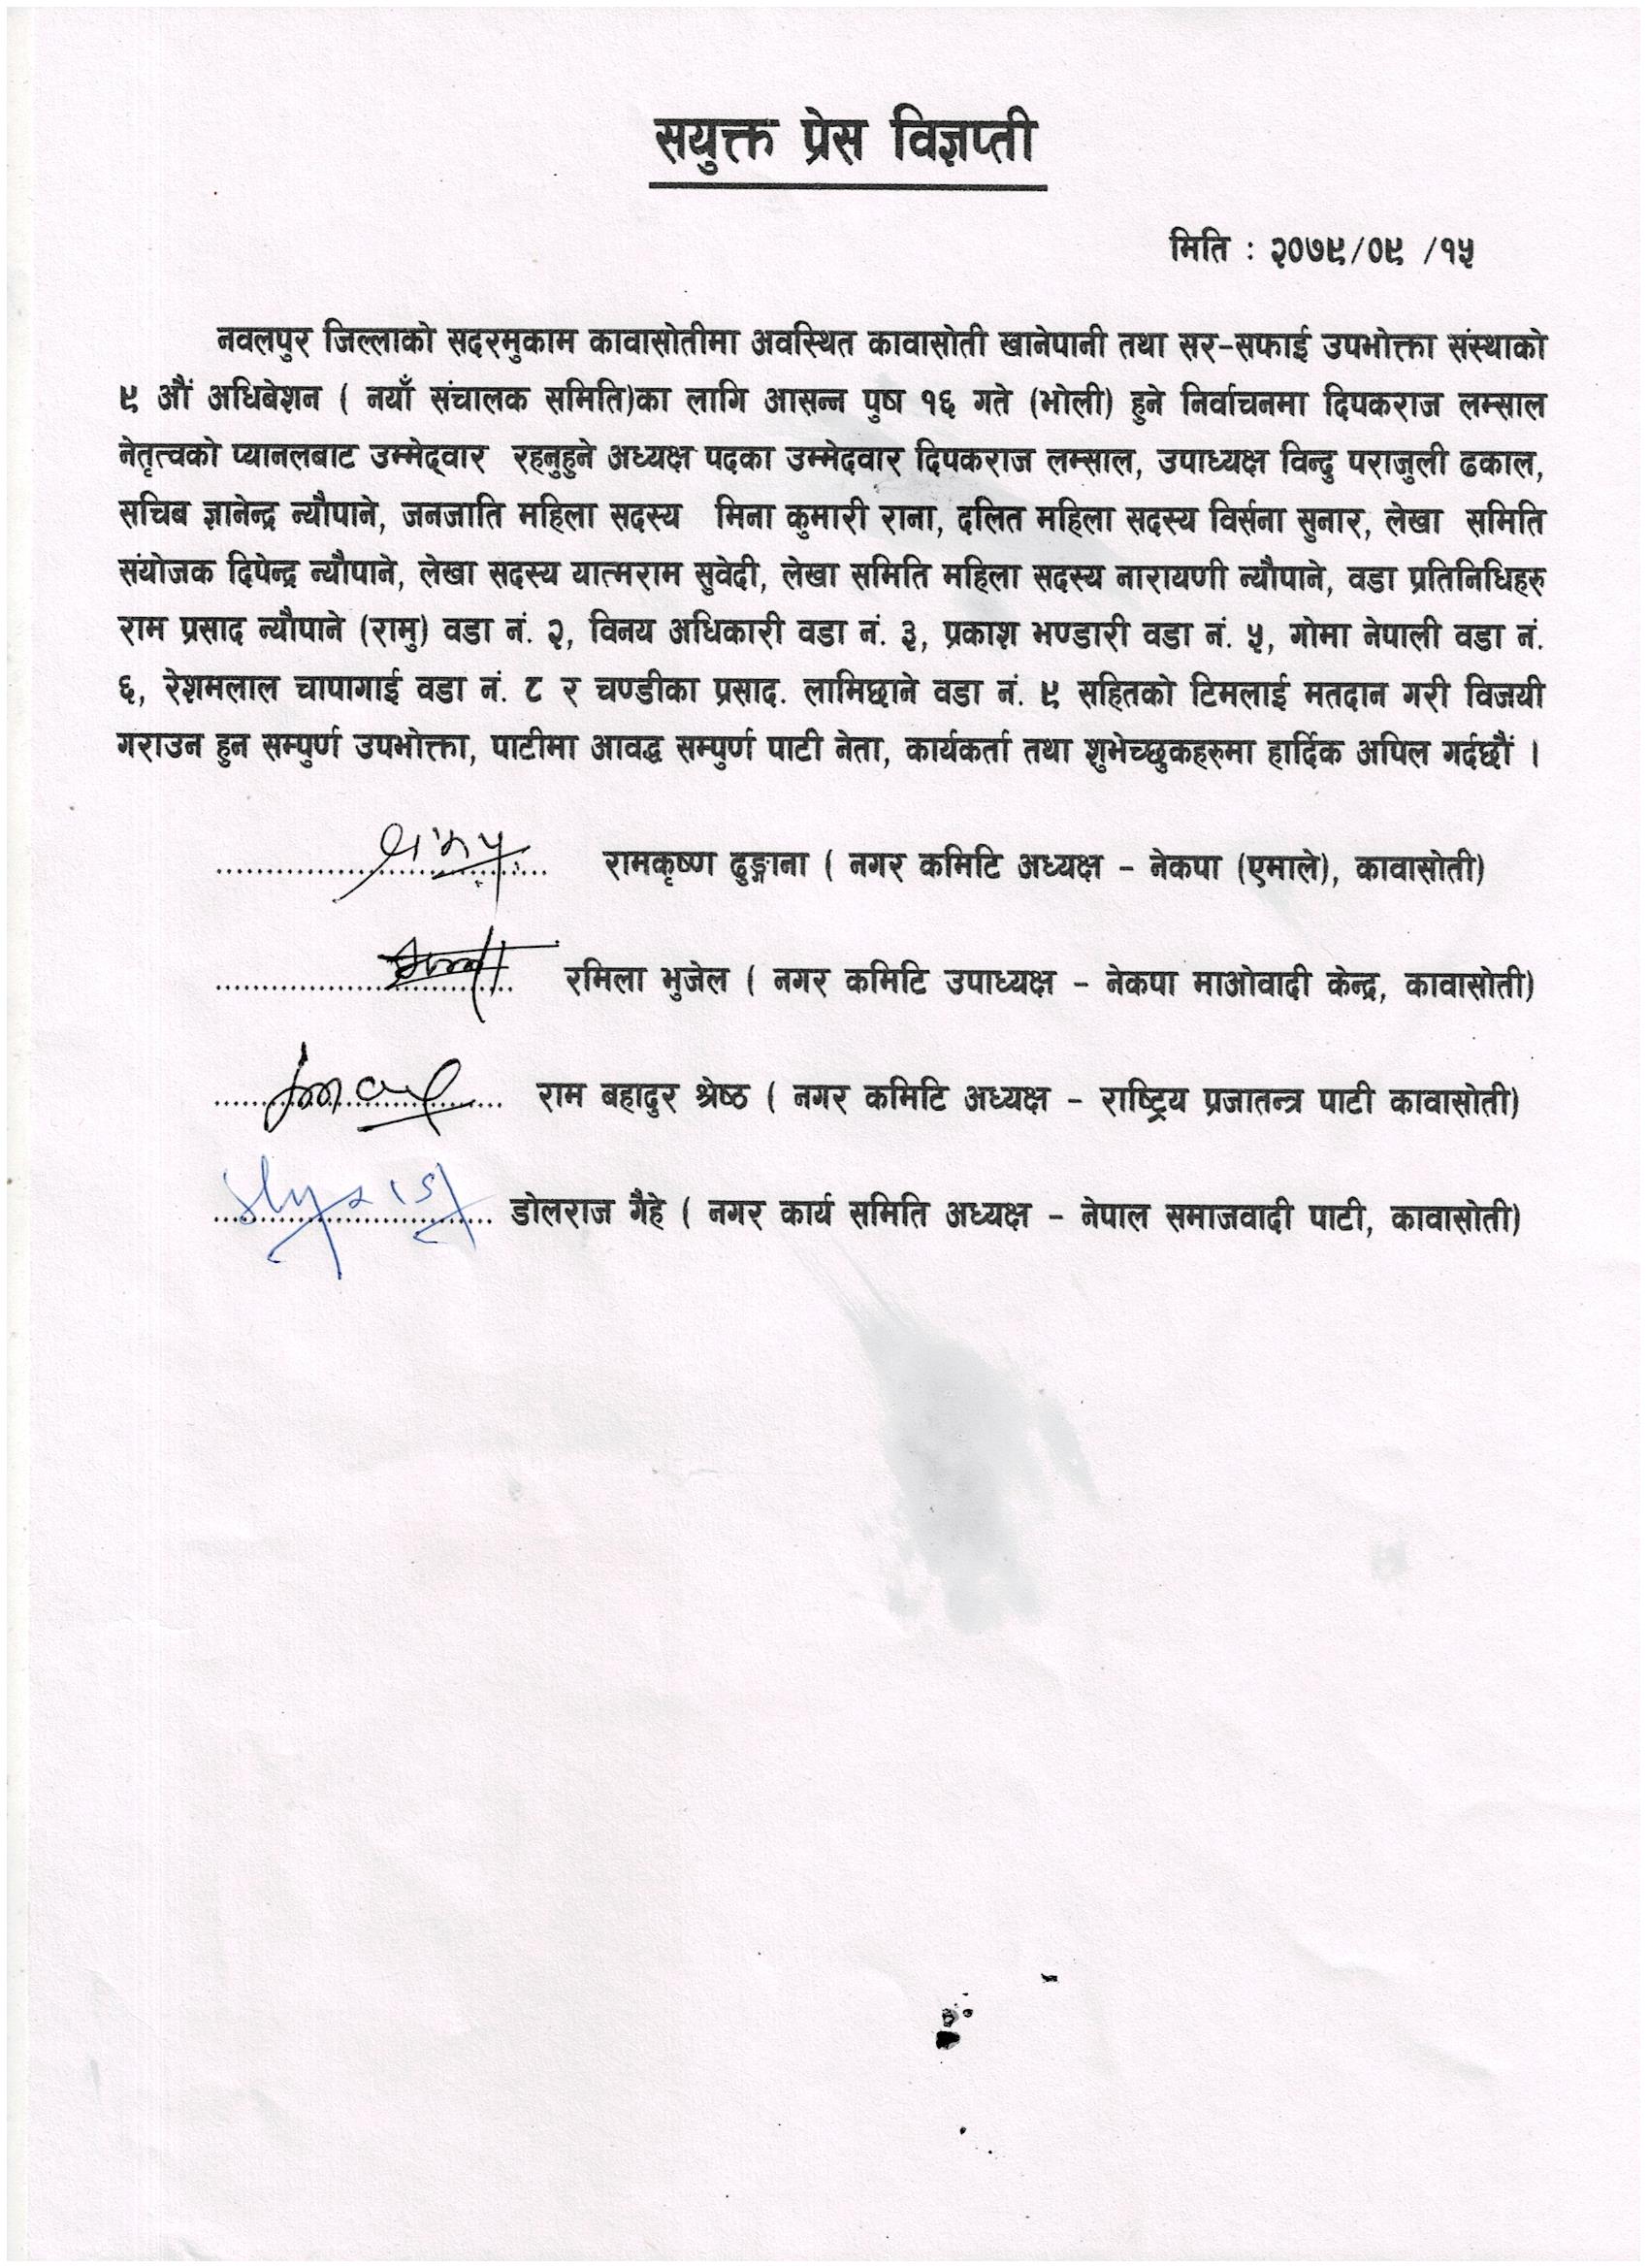 सयुक्त प्रेस विज्ञप्ती
मिति : २०७९/०९ /१५
नवलपुर जिल्लाको सदरमुकाम कावासोतीमा अवस्थित कावासोती खानेपानी तथा सर-सफाई उपभोक्ता संस्थाको
९ औं अधिबेशन ( नयाँ संचालक समिति)का लागि आसन्न पुष १६ गते (भोली) हुने निर्वाचनमा दिपकराज लम्साल
नेतृत्वको प्यानलबाट उम्मेद्वार रहनुहुने अध्यक्ष पदका उम्मेदवार दिपकराज लम्साल, उपाध्यक्ष विन्दु पराजुली ढकाल,
सचिब ज्ञानेन्द्र न्यौपाने, जनजाति महिला सदस्य मिना कुमारी राना, दलित महिला सदस्य विर्सना सुनार, लेखा समिति
संयोजक दिपेन्द्र न्यौपाने, लेखा सदस्य यात्मराम सुवेदी, लेखा समिति महिला सदस्य नारायणी न्यौपाने, वडा प्रतिनिधिहरु
राम प्रसाद न्यौपाने (रामु) वडा नं. २, विनय अधिकारी वडा नं. ३, प्रकाश भण्डारी वडा नं. ५, गोमा नेपाली वडा नं.
६, रेशमलाल चापागाई वडा नं. ८ र चण्डीका प्रसाद. लामिछाने वडा नं. ९ सहितको टिमलाई मतदान गरी विजयी
गराउन हुन सम्पुर्ण उपभोक्ता, पाटीमा आवद्ध सम्पुर्ण पाटी नेता, कार्यकर्ता तथा शुभेच्छुकहरुमा हार्दिक अपिल गर्दछौं ।
रामकृष्ण ढुङ्गाना ( नगर कमिटि अध्यक्ष - नेकपा (एमाले), कावासोती)
रमिला भुजेल ( नगर कमिटि उपाध्यक्ष - नेकपा माओवादी केन्द्र, कावासोती)
राम बहादुर श्रेष्ठ ( नगर कमिटि अध्यक्ष - राष्ट्रिय प्रजातन्त्र पाटी कावासोती)
डोलराज गैहे ( नगर कार्य समिति अध्यक्ष - नेपाल समाजवादी पाटी, कावासोती)